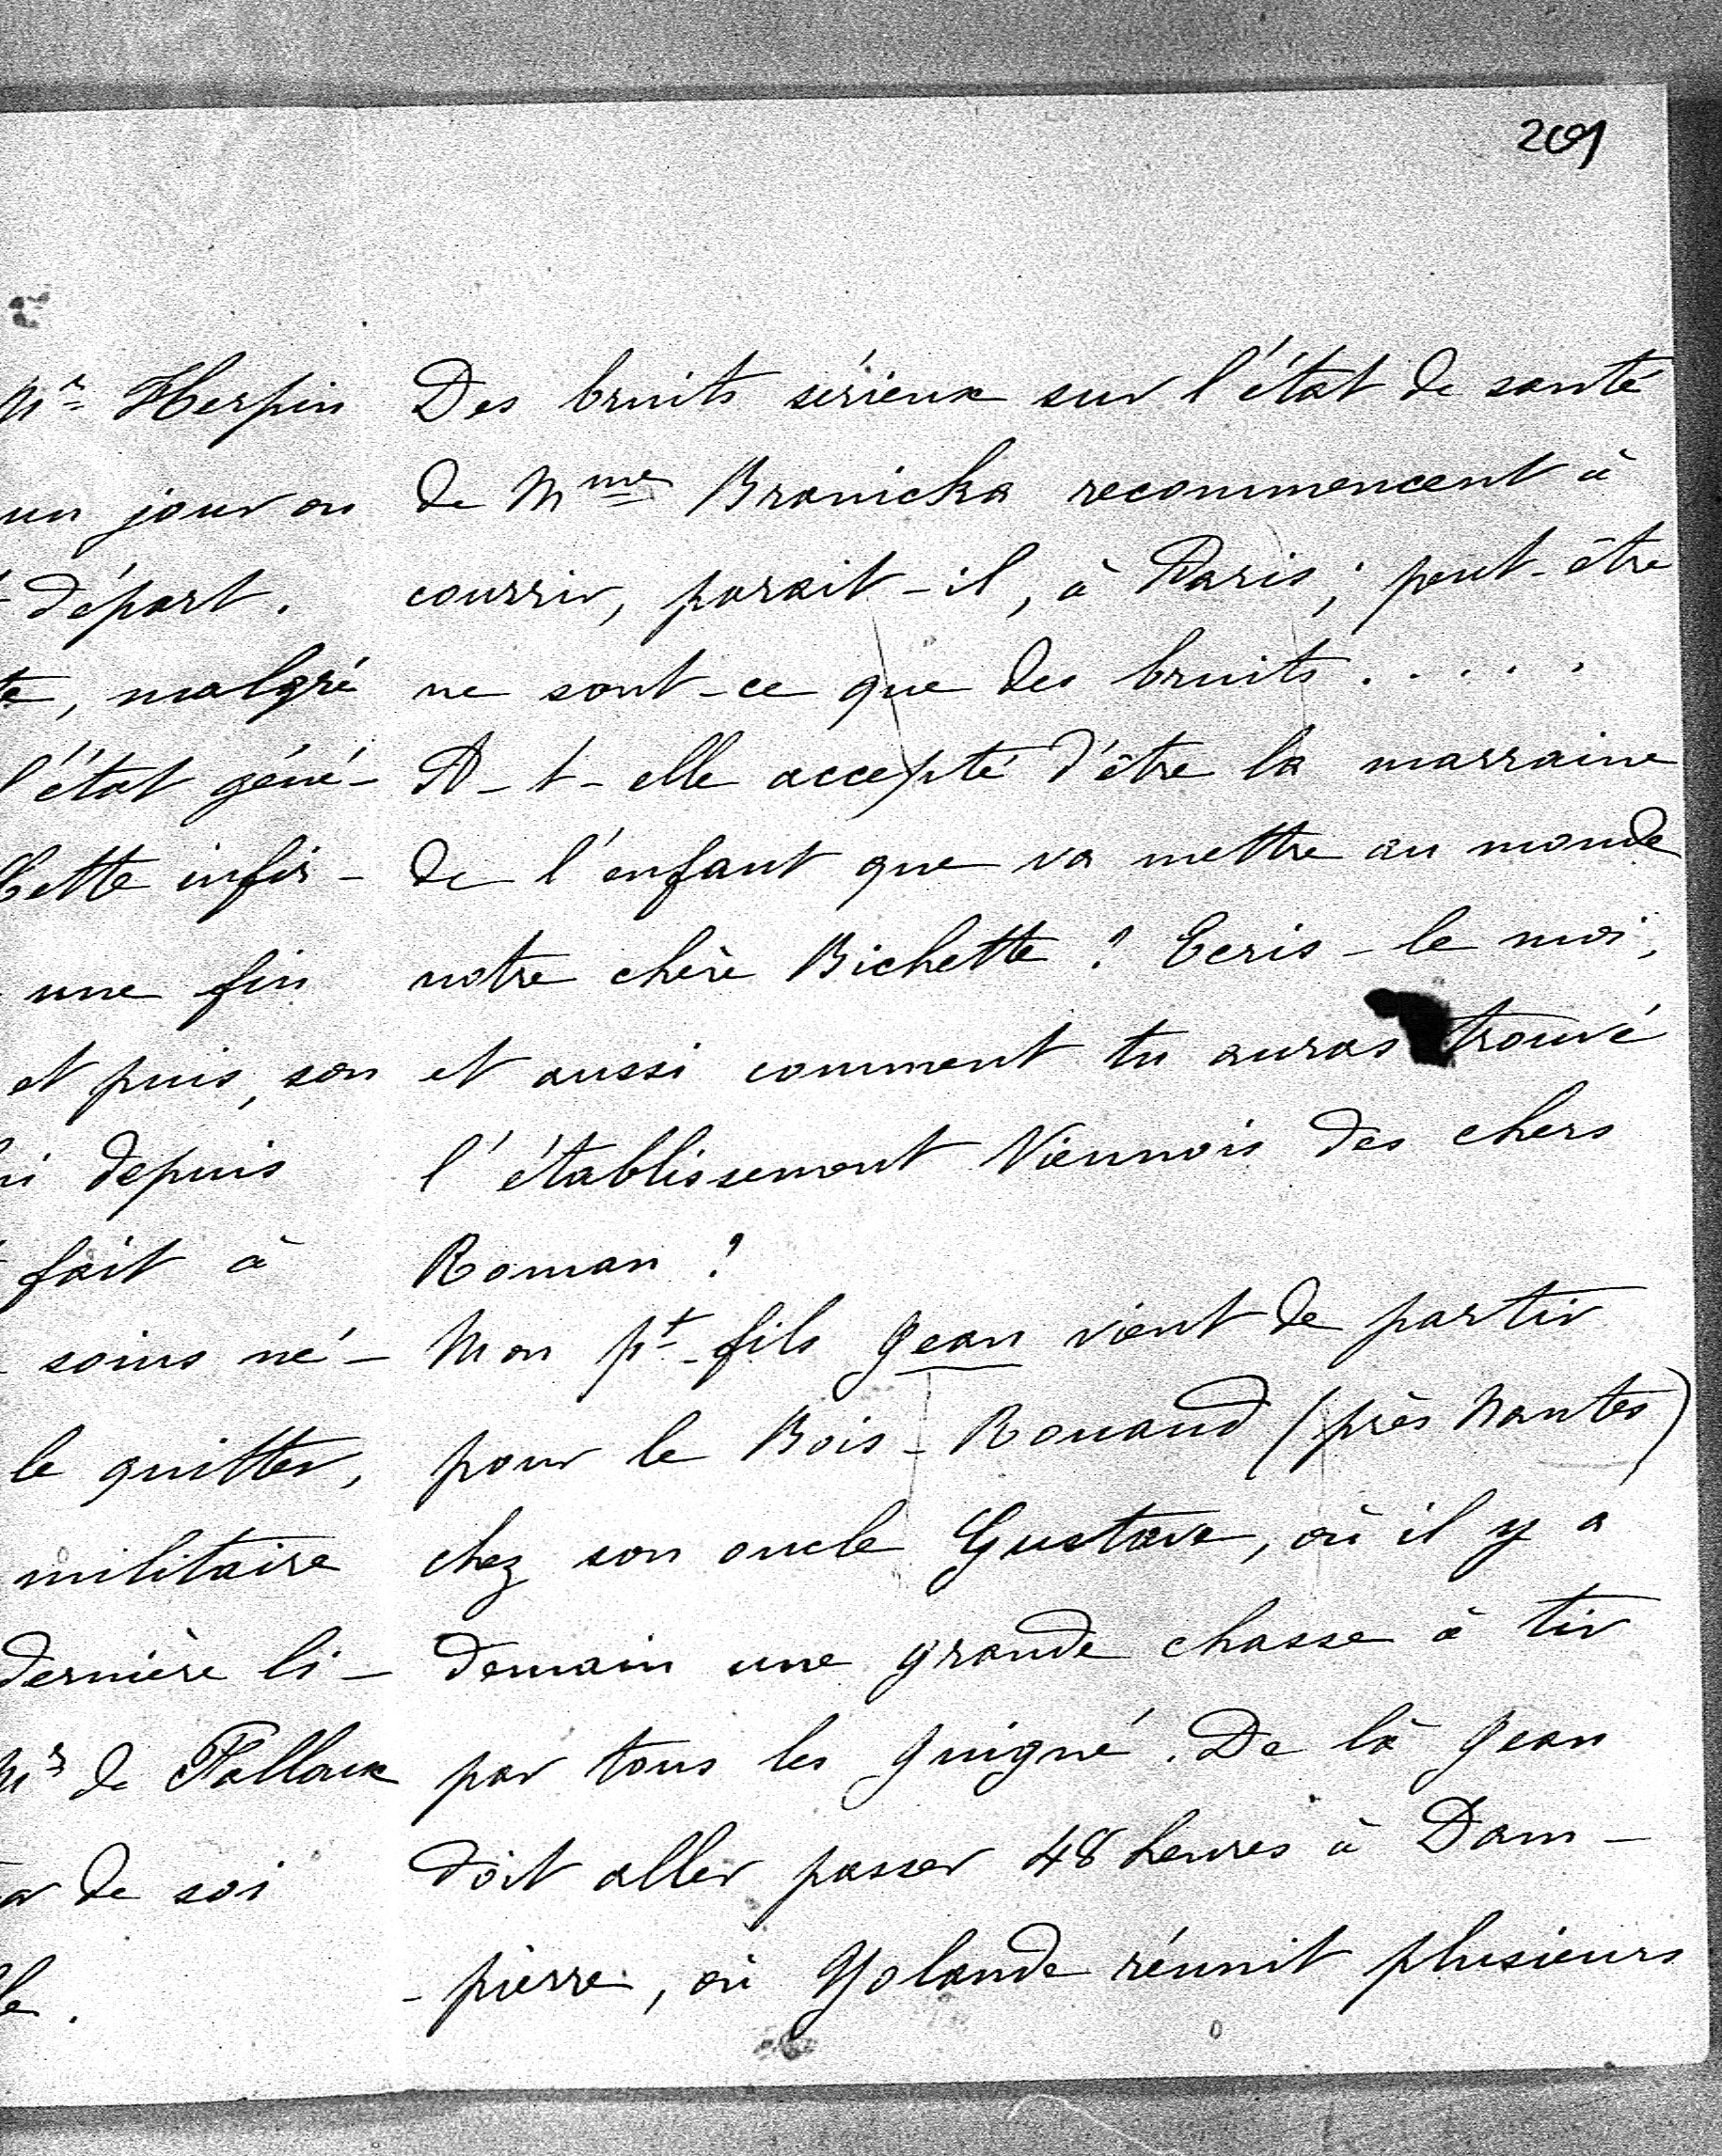 209
Mr Herpin
un jour ou
départ.
te, malgré
l'état géné-
Cette infir-
une fin
et puis, son
depuis
fait à
soins né-
le quitter,
militaire
dernière li-
Mr de Falloux
de soi
Des bruits sérieux sur l'état de santé
de Mme Branicka recommencent à
courrir, parait-il, à Paris; peut-être
ne sont-ce que des bruits.....
A-t-elle accepté d'être la marraine
de l'enfant que va mettre au monde
notre chère Bichette? Ecris-le moi,
et aussi comment tu auras trouvé
l'établissement Viennois des chers
Roman?
Mon pt-fils Jean vient de partir
pour le Bois-Rouaud (près Nantes)
chez son oncle Gustave, où il y a
demain une grande chasse à tir
par tous les Juigné. De là Jean
doit aller passer 48 heures à Dam-
-pierre, où Yolande réunit plusieurs